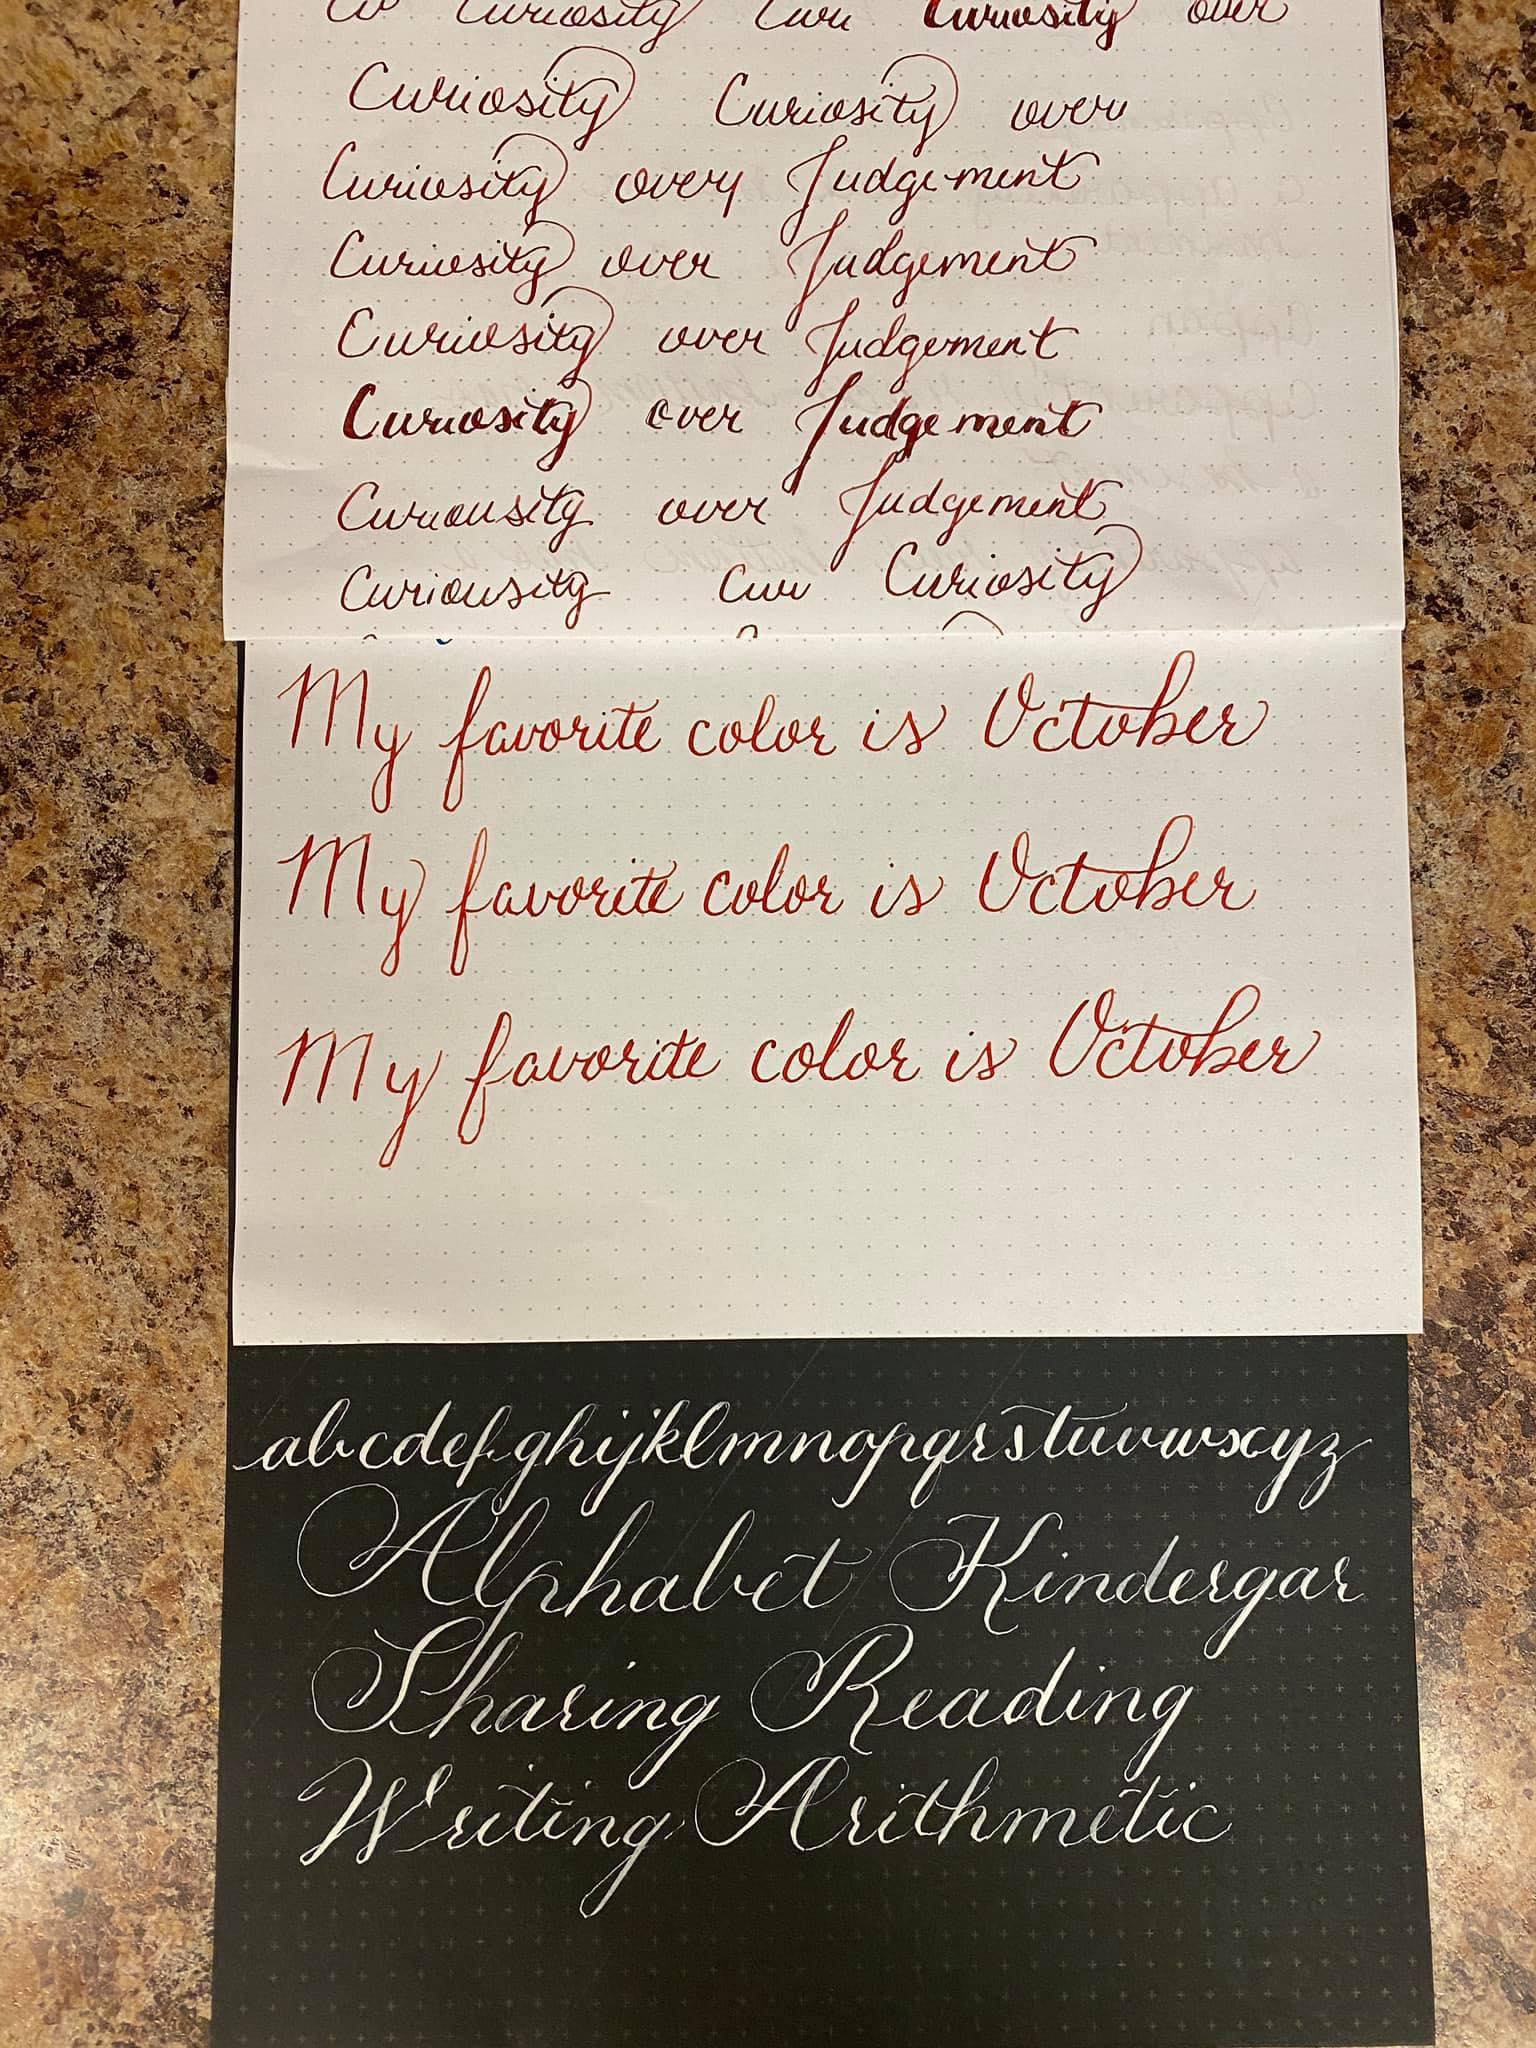 Cu Curiosity Curi Curiosity over
Curiosity Curiosity over
Curiosity over Judgement
Curiosity over Judgement
Curiosity over Judgement
Curiosity over Judgement
Curiousity over Judgement
Curiousity Cur Curiosity
My favorite color is October
My favorite color is October
My favorite color is October
abcdefghijklmnopqrstuvwxyz
Alphabet Kindergar
Sharing Reading
Writing Arithmetic